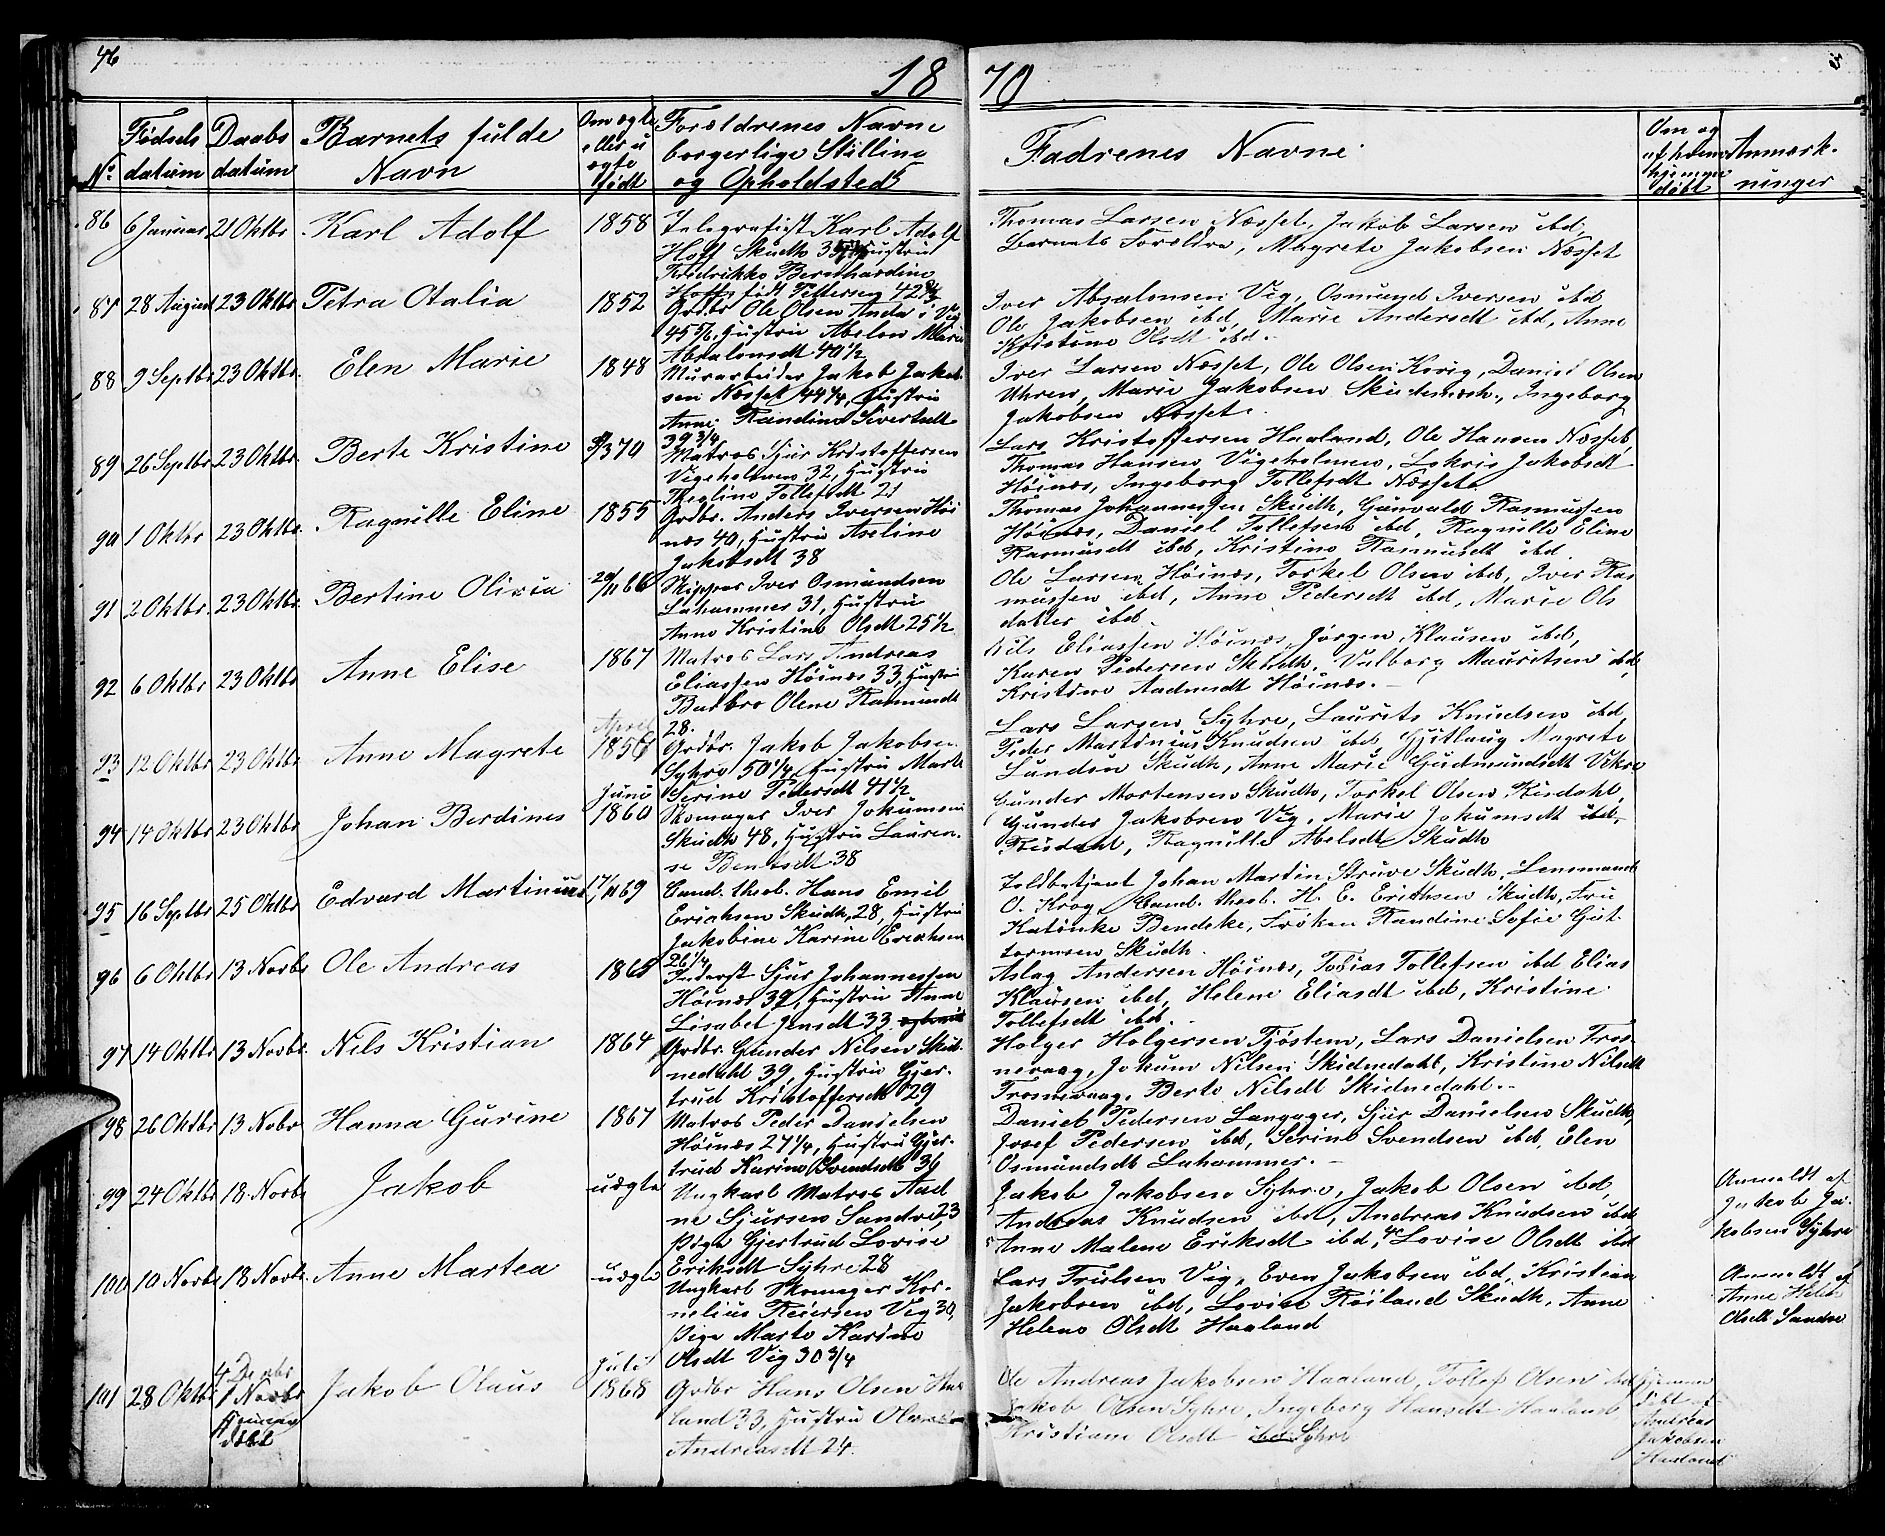 46
1870
No
Fødsels datum
Daabs datum
Barnets fulde Navn
Om ægte eller uægte født
Forældrenes Navne borgerlige Stilling og Opholdsted
Fadrenes Navne
Om og af hvem hjemme døbt
Anmærkninger
86 6 Januar 21 Oktbr Karl Adolf 1858
Telegrafist Karl Adolf
Hoff Skudh 35 Hustru
Fredrikke Bernthardine
Hoff født Pettersen 42
Thomas Larsen Næsset, Jakob Larsen ibd,
Barnets Foreldre, Magrete Jakobsen Næsset
87 28 August 23 Oktbr Petra Otalia 1852
Grdbr Ole Olsen Anda i Vig
45 5/6, Hustru Abelon Marie
Absalonsdt 40 1/2
Iver Absalonsen Vig, Osmund Iversen ibd
Ole Jakobsen ibd, Marie Andersdt ibd, Anne
Kristine Olsdt ibd.
88 9 Septbr 23 Oktbr. Elen Marie 1848
Murarbeider Jakob Jakob-
sen Næsset 44 1/4, Hustru
Anne Randine Sivertsdt
39 3/4
Iver Larsen Næsset, Ole Olsen Korig, Daniel Olsen
Uhren, Marie Jakobsen Skudesnæsh., Ingeborg
Jakobsen Næsset.
89 26 Septbr 23 Oktbr. Berte Kristine 9/3 70
Matros Sjur Kristoffersen
Vigeholmen 32, Hustru
Theoline Tollefsdt 21
Lars Kristoffersen Haaland, Ole Hansen Næsset,
Thomas Hansen Vigeholmen, Jakobsdt
Høinæs, Ingeborg Tollefsdt Næsset.
90 1 Oktbr 23 Oktbr. Ragnille Eline 1855
Grdbr. Anders Iversen Høi
næs 40, Hustru Aseline
Jakobsdt 38
Thomas Johannessen Skudh, Gunvald Rasmussen
Høinæs, Daniel Tollefsen ibd, Ragnille Eline
Rasmusdt ibd, Kristine Rasmusdt ibd.
91 2 Oktbr. 23 Oktbr. Bertine Olivia 20/11 66
Skipper Iver Osmundsen
Lahammer 31, Hustru
Anne Kristine Olsdt 25 1/2
Ole Larsen Høinæs, Torkel Olsen ibd, Iver Ras
mussen ibd, Anne Pedersdt ibd, Marie Ols
datter ibd.
92 6 Oktbr 23 Oktbr Anne Elise 1867
Matros Lars Andreas
Eliassen Høinæs 33, Hustru
Barbro Olene Rasmusdt
28.
Nils Eliassen Høinæs, Jørgen Klausen ibd,
Karen Pedersen Skudh, Valborg Mauritsen ibd,
Kristine Aadnesdt Høinæs.
93 12 Oktbr 23 Oktbr Anne Magrete April 1856
Grdbr. Jakob Jakobsen
Syhre 50 1/4, Hustru Marte
Serine Pedersdt 41 1/2
Lars Larsen Syhre, Laurits Knudsen ibd,
Peder Martinius Knudsen ibd, Gjitlaug Magrete
Lundsen Skudh, Anne Marie Gudmundsdt Vikre
94 14 Oktbr 23 Oktbr. Johan Berdines Juni 1860
Skomager Iver Jokumsen
Skudh 48, Hustru Lauren-
se Bentsdt 38
Gunder Mortensen Skudh, Torkel Olsen Risdahl,
Gunder Jakobsen Vig, Marie Jokumsdt ibd,
Risdahl, Ragnille Abelsdt Skudh
95 16 Septbr 25 Oktbr Edvard Martinius 17/11 69
Cand. theol. Hans Emil
Erichsen Skudh, 28, Hustru
Jakobine Karine Erichsen
26 1/4
Toldbetjent Johan Martin Struve Skudh, Lensmand
O. Krog, Cand. theol. H. E. Erichsen Skudh, Fru
Katinke Bendeke, Frøken Randine Sofie Gut
tormsen Skudh
96 6 Oktbr 13 Novbr Ole Andreas 1865
Inderst Sjur Johannessen
Høinæs 39, Hustru Anne
Lisabet Jensdt 33
Aslag Andersen Høinæs, Tobias Tollefsen ibd Elias
Klausen ibd, Helene Eliasdt ibd, Kristine
Tollefsdt ibd.
97 14 Oktbr 13 Novbr. Nils Kristian 1864
Grdbr. Gunder Nilsen Skid-
nedahl 39, Hustru Gjer-
trud Kristoffersdt 29
Holger Holgersen Tjøstem, Lars Danielsen Tros-
nevaag, Jokum Nilsen Skidnedahl, Kristine Nilsdt
Trosnevaag, Berte Nilsdt Skidnedahl.
98 26 Oktbr 13 Nobr Hanna Gurine 1867
Matros Peder Danielsen
Høinæs 27 1/4, Hustru Gjer-
trud Karine Svendsdt 36
Daniel Pedersen Langager, Sjur Danielsen Skudh,
Josef Pedersen ibd, Serine Svendsen ibd, Elen
Osmundsdt Lahammer.
99 24 Oktbr 18 Novbr Jakob uægte
Ungkarl Matros Aad
ne Sjursen Sandve 23
Pige Gjertrud Lovise
Eriksdt Syhre 28
Jakob Jakobsen Syhre, Jakob Olsen ibd,
Andreas Knudsen ibd, Andreas Knudsen ibd
Anne Malene Eriksdt ibd, Lovise Olsdt ibd
Anmeldt af
Jakob Ja-
kobsen Syhre
100 10 Novbr 18 Novbr. Anne Martea uægte
Ungkarl Skomager Kor-
nelius Reiersen Vig 30,
Pige Marte Karine
Olsdt Vig 30 3/4
Lars Trulsen Vig, Even Jakobsen ibd, Kristian
Jakobsen ibd, Lovise Røiland Skudh, Anne
Helene Olsdt Haaland
Anmeldt af
Anne Helene
Olsdt Sandve
101 28 Oktbr 4 Decbr 1 Novbr hjemme døbt Jakob Olaus Juli 1868
Grdbr Hans Olsen Haa
land 33, Hustru Olene
Andreasdt 24.
Ole Andreas Jakobsen Haaland, Tollef Olsen ibd
Jakob Olsen Syhre, Ingeborg Hansdt Haaland,
Kristiane Olsdt ibd Syhre
hjemme
døbt af
Andreas
Jakobsen
Haaland